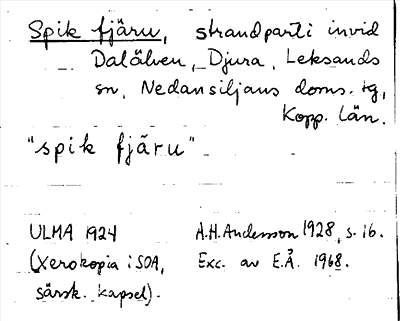 Spik fjäru, strandparti invid
Dalälven, Djura, Leksands
sn, Nedansiljans doms. tg,
Kopp. län.
"spik fjäru"
ULMA 1924 A.H. Andersson 1928, s. 16.
(Xerokopia i SOA, Exc. av E.Å. 1968.
särsk. kapsel).